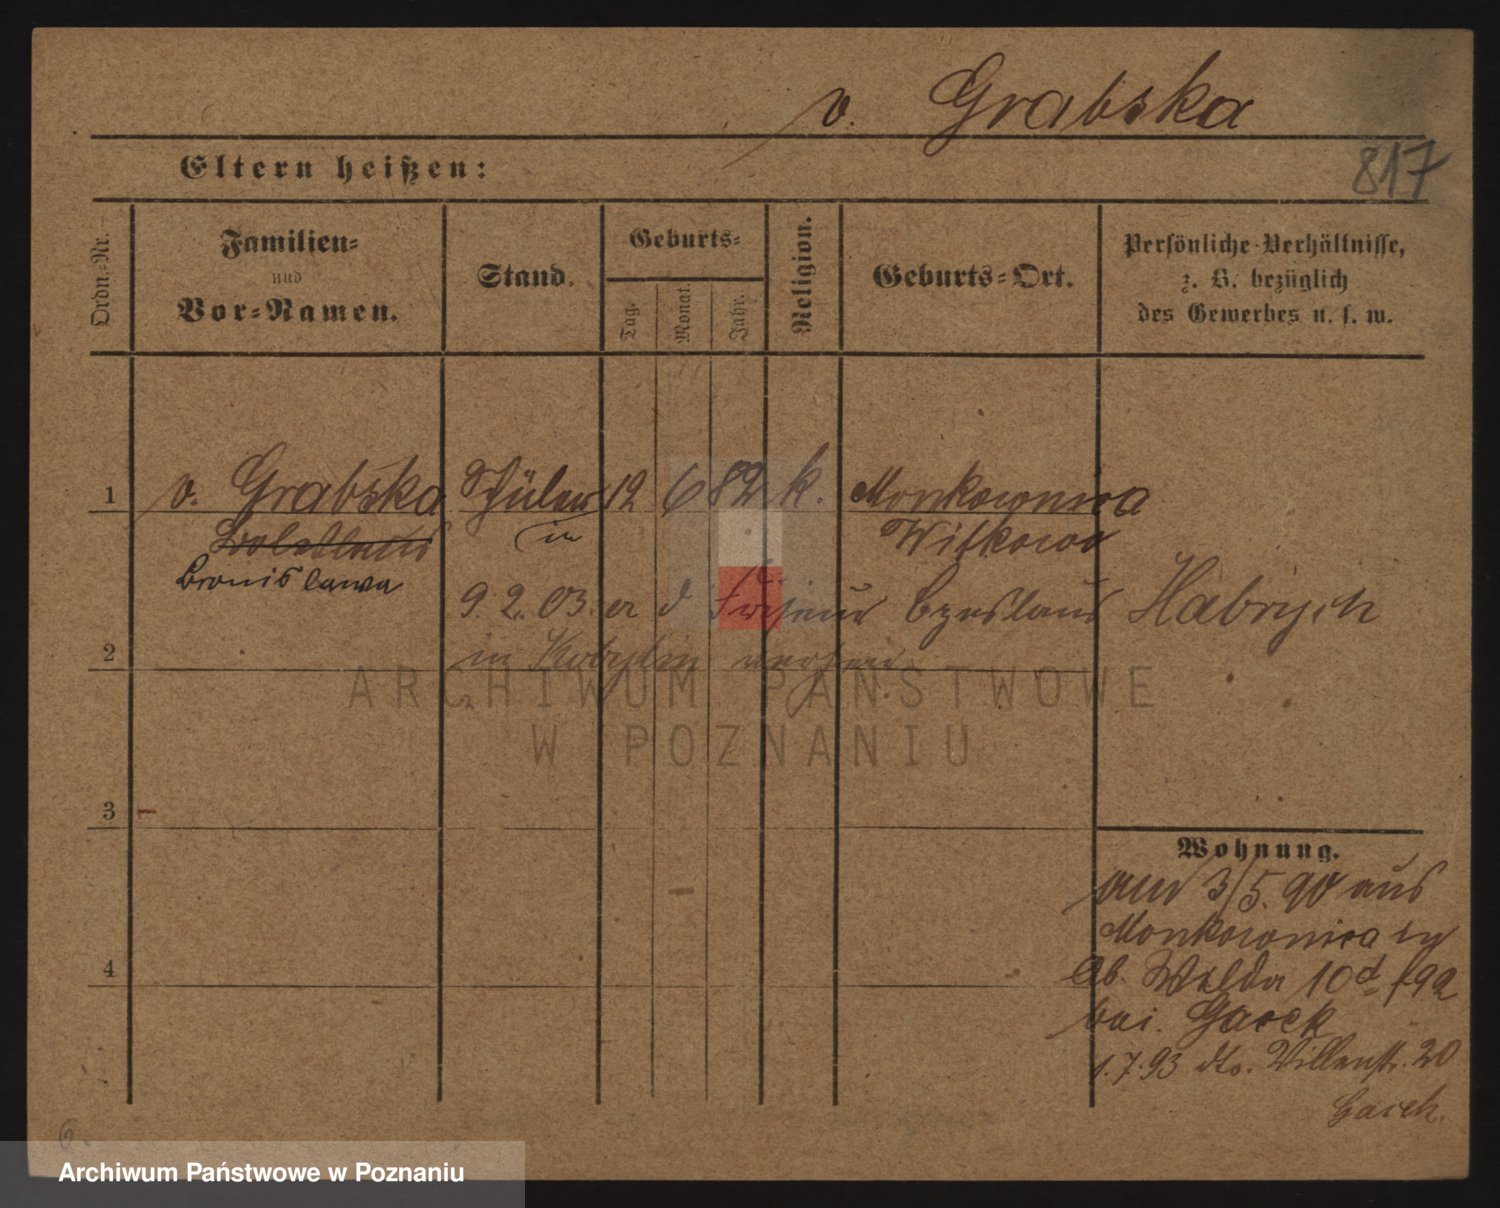 v. Grabska
Eltern heißen:
817
Ordn.-Nr.
Familien-
und
Vor-Namen.
Stand.
Geburts-
Tag.
Monat.
Jahr.
Religion.
Geburts-Ort.
Persönliche Verhältnisse,
z. B. bezüglich
des Gewerbes u. s. w.
1 v. Grabska Schüler 12 6 82 k. Monkownica
in Witkowo
Bronislawa
9. 2. 03. er d. Friseur Czeslaus Habrych
2 in Kobylin
ARCHIWUM PAŃSTWOWE
W POZNANIU
3
Wohnung.
am 3/5. 90 aus
Monkownica
4
Ob. Wilda 10d f 92
bei. Gacek
1. 7. 93 dto. Villenstr. 20
Gacek.
6.
Archiwum Państwowe w Poznaniu